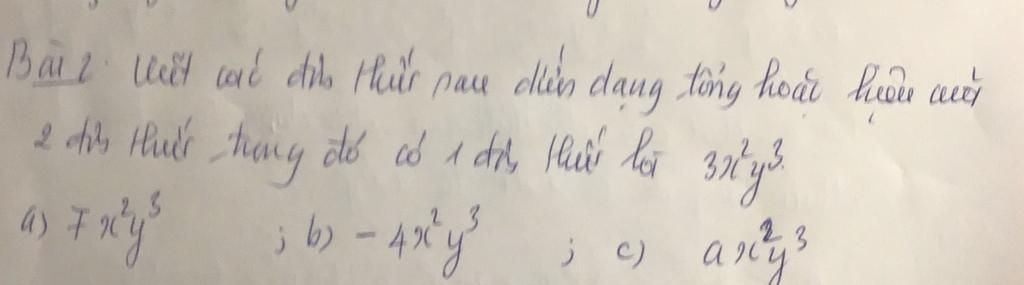 Bài 2. Viết các đơn thức sau dưới dạng tổng hoặc hiệu của
2 đơn thức trong đó có 1 đơn thức là 3x²y³.
a) 7x²y³ ; b) -4x²y³ ; c) ax²y³